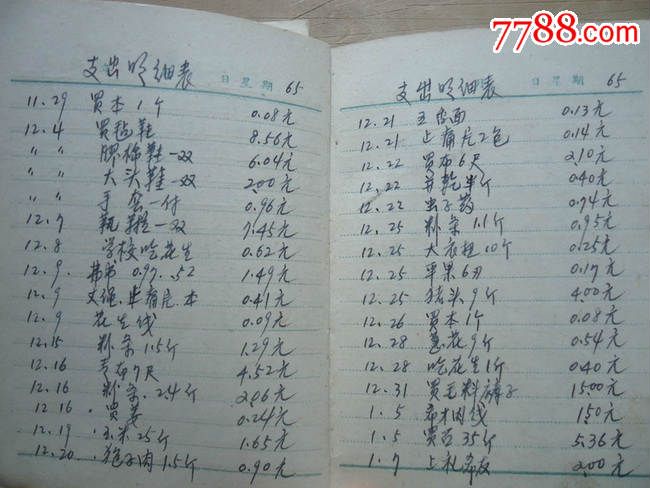 7788.com
日 星 期 65
支出明细表
11.29 買本1个 0.08元
12.4 買毡鞋 8.56元
〃 〃 棉鞋一双 6.04元
〃 〃 大头鞋一双 2.00元
〃 〃 手套一付 0.96元
12.7 靰鞋一双 7.45元
12.8 学校吃花生 0.62元
12.9. 0.97. .52 1.49元
12.9 止痛片.本 0.41元
12.9 花生线 0.09元
12.15 粉条 1.5斤 1.29元
12.16 布7尺 4.52元
12.16 粉条.2.4斤 2.06元
12.16 .買姜 0.24元
12.19 .玉米25斤 1.65元
12.20 .狍子肉1.5斤 0.90元
日 星 期 65
支出明细表
12.21 面 0.13元
12.21 止痛片2包 0.14元
12.22 買布6尺 2.10元
12.22 并乾半斤 0.40元
12.22 虫子药 0.74元
12.25 粉条 1.1斤 0.95元
12.25 大衣扣10个 0.25元
12.25 苹果6 0.17元
12.25 猪头9斤 4.00元
12.26 買本1个 0.08元
12.28 葱花9斤 0.54元
12.28 吃花生1斤 0.40元
12.31 買毛料裤子 15.00元
1.5 线 1.50元
1.5 買 35斤 5.36元
1.7 上礼 2.00元